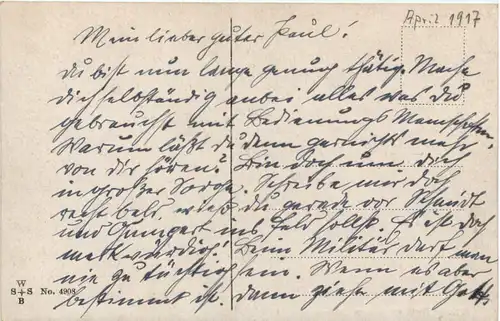 April 1917
Mein lieber guter Paul!
du bist nun lange genug thätig. Mache
dich selbständig anbei alles was du
gebrauchst mit Bedienungs Mannschaften.
Warum läßt du denn garnichts mehr
von dir hören? Bin doch um dich
in großer Sorge. Schreibe mir doch
recht bald, wieso du gerade vor Schmidt
und ins Feld sollst. Es ist doch
merkwürdig! Beim Militär darf man
nie zu tüchtig sein. Wenn es aber
bestimmt ist, dann ziehe mit Gott,
W
S+S No. 4908
B